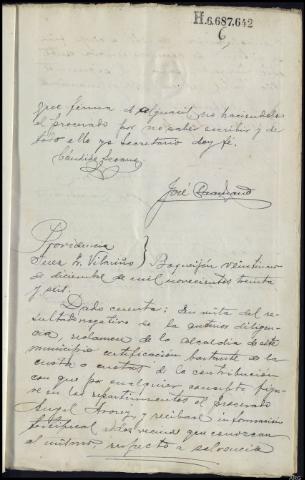 H.6.687.642
6
que firma el Alguacil, no haciendolo
el procesado por no saber escribir y de
todo ello yo Secretario doy fé.
Cándido
José
Providencia
Juez Sr. Vilariño } Boqueijón veintinueve
de diciembre de mil novecientos treinta
y seis.
Dado cuenta: En vista del re-
sultado negativo de la anterior diligen-
cia, reclamen de la alcaldia de este
municipio certificación bastante de la
cuota o cuotas de la contribución
con que por cualquier concepto figu-
re en los repartimientos el procesado
Angel, y recibase información
testifical de dos vecinos que conozcan
al mismo, respecto a solvencia